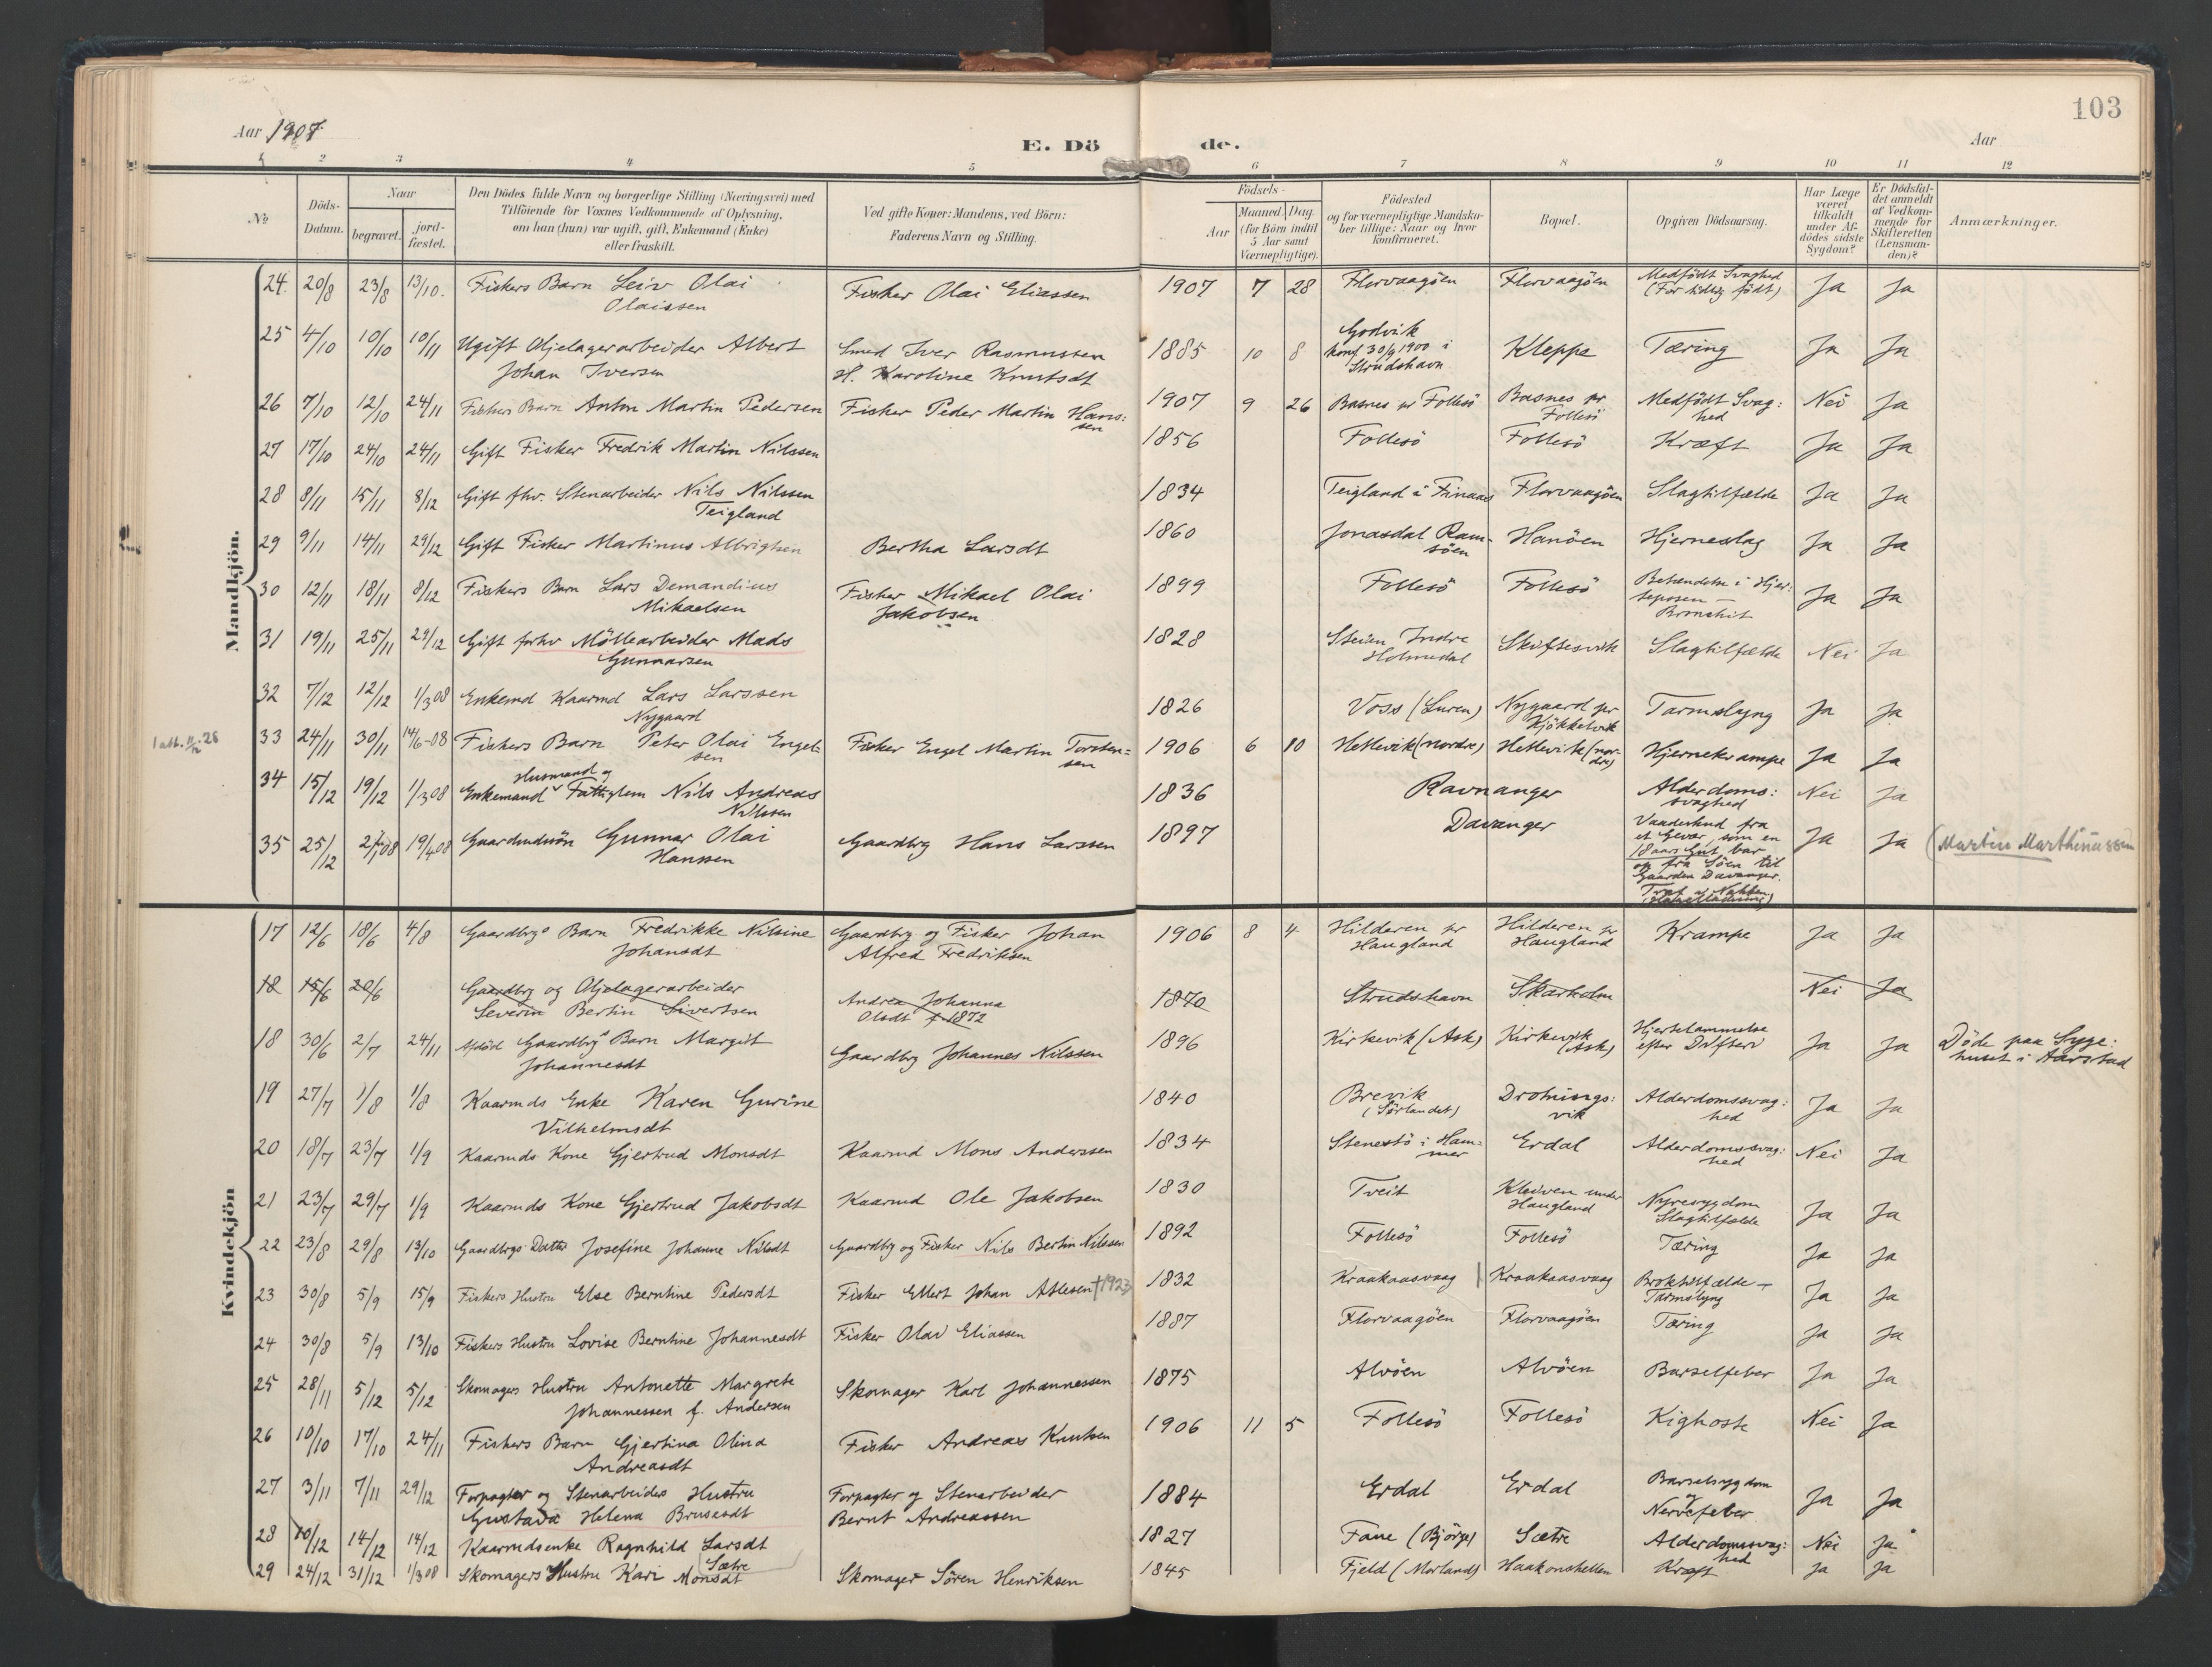 103
Aar 1907
E. Dö
de.
Aar
1 2 3 4 5 6 7 8 9 10 11 12
No
Döds-Datum.
Naar
begravet.
jord-fæstet.
Den Dödes fulde Navn og borgerlige Stilling (Næringsvei) med
Tilföiende for Voxnes Vedkommende af Oplysning,
om han (hun) var ugift, gift, Enkemand (Enke)
eller fraskilt.
Ved gifte Koner: Mandens, ved Börn:
Faderens Navn og Stilling.
Födsels-
Aar
Maaned Dag
(for Börn indtil
5 Aar samt
Værnepligtige).
Födested
og for værnepligtige Mandska-
ber tillige: Naar og hvor
konfirmeret.
Bopæl.
Opgiven Dödsaarsag.
Har Læge
været
tilkaldt
under Af-
dödes sidste
Sygdom?
Er Dödsfal-
det anmeldt
af Vedkom-
mende for
Skifteretten
(Lensman-
den)?
Anmærkninger.
Mandkjön.
24. 20/8 23/8 13/10. Fiskers Barn Leiv Olai Olaissen Fisker Olai Eliassen 1907 7 28 Florvaagöen Florvaagöen Medfödt Svaghed (For tidlig födt) Ja Ja
25 4/10 10/10 10/11 Ugift Oljelagerarbeider Albert Johan Iversen Smed Iver Rasmussen H. Karoline Knutsdt 1885 10 8 Godvik konf 30/9 1900 i Strudshavn Kleppe Tæring Ja Ja
26 7/10 12/10 24/11 Fiskers Barn Anton Martin Pedersen Fisker Peder Martin Hans:sen 1907 9 26 Basnes pr Follesö Basnes pr Follesö Medfödt Svag:hed Nei Ja
27 17/10 24/10 24/11 Gift Fisker Fredrik Martin Nilssen 1856 Follesö Follesö Kræft Ja Ja
28 8/11 15/11 8/12 Gift fhv. Stenarbeider Nils Nilssen Teigland 1834 Teigland i Finaas Florvaagöen Slagtilfælde Ja Ja
29 9/11 14/11 29/12 Gift Fisker Martinus Albrigtsen Bertha Larsdt 1860 Jonasdal Ram-söen Hanöen Hjerneslag Ja Ja
30 12/11 18/11 8/12 Fiskers Barn Lars Demandius Mikaelsen Fisker Mikael Olai Jakobsen 1899 Follesö Follesö Betændelse i Hjer:teposen — Bronchit Ja Ja
31 19/11 25/11 29/12 Gift forhv Möllearbeider Mads Gunnarsen 1828 Steien Indre Holmedal Skiftesvik Slagtilfælde Nei Ja
32 7/12 12/12 1/3 08 Enkemd Kaarmd Lars Larssen Nygaard 1826 Voss (Luren) Nygaard pr Kjökkelvik Tarmslyng Ja Ja
33 24/11 30/11 14/6-08 Fiskers Barn Peter Olai Engel-sen Fisker Engel Martin Torsten=sen 1906 6 10 Hetlevik (nordre) Hetlevik (nor-dre) Hjernekrampe Ja Ja
34 15/12 19/12 1/3 08 Enkemand Husmand og Fattiglem Nils Andreas Nilssen 1836 Ravnanger Alderdoms:svaghed Nei Ja
35 25/12 2/1 08 19/4 08 Gaardmdssön Gunnar Olai Hanssen Gaardbrg Hans Larssen 1897 Davanger Vaadeskud fra et Gevær, som en 18 aars Gut bar op fra Söen til Gaarden Davanger. Traf i Nakken Ja Ja (Martin Marthinussen
Kvindekjön
17 12/6 18/6 4/8 Gaardbrgs Barn Fredrikke Nilsine Johansdt Gaardbrg og Fisker Johan Alfred Fredriksen 1906 8 4 Hilderen pr Haugland Hilderen pr Haugland Krampe Ja Ja
18 15/6 20/6 Gaardbrg og Oljelagerarbeider Severin Bertin Sivertsen Andrea Johanna Olsdt f. 1872 1870 Strudshavn Skarholm Nei Ja
18 30/6 2/7 24/11 Afdöd Gaardbrgs Barn Margit Johannesdt Gaardbrg Johannes Nilssen 1896 Kirkevik (Ask) Kirkevik (Ask) Hjertelammelse efter Difteri Ja Ja Döde paa Syge:huset i Aarstad
19 27/7 1/8 1/8 Kaarmds Enke Karen Gurine Vilhelmsdt 1840 Brevik (Sörlandet) Drotnings:vik Alderdomssvag:hed Ja Ja
20 18/7 23/7 1/9 Kaarmds Kone Gjertrud Monsdt Kaarmd Mons Anderssen 1834 Stenestö i Ham=mer Erdal Alderdomssvag:hed Nei Ja
21 23/7 29/7 1/9 Kaarmds Kone Gjertrud Jakobsdt Kaarmd Ole Jakobsen 1830 Tveit Kleiven under Haugland Nyresygdom Slagtilfælde Ja Ja
22 23/8 29/8 13/10 Gaardbrgs Datter Josefine Johanne Nilsdt Gaardbrg og Fisker Nils Bertin Nilssen 1892 Follesö Follesö Tæring Ja Ja
23 30/8 5/9 15/9 Fiskers Hustru Else Berntine Pedersdt Fisker Ellert Johan Atlesen †1923 1832 Kraakaasvaag Kraakaasvaag Broktilfælde — Tarmslyng Ja Ja
24 30/8 5/9 13/10 Fiskers Hustru Lovise Berntine Johannesdt Fisker Olai Eliassen 1887 Florvaagöen Florvaagöen Tæring Ja Ja
25 28/11 5/12 5/12 Skomagers Hustru Antonette Margrete Johannessen f. Andersen Skomager Karl Johannessen 1875 Alvöen Alvöen Barselfeber Ja Ja
26 10/10 17/10 24/11 Fiskers Barn Gjertina Olina Andreasdt Fisker Andreas Knutsen 1906 11 5 Follesö Follesö Kighoste Nei Ja
27 3/11 7/11 29/12 Forpagter og Stenarbeiders Hustru Gustava Helena Brusesdt Forpagter og Stenarbeider Bernt Andreassen 1884 Erdal Erdal Barselsygdom og Nervefeber Ja Ja
28 10/12 14/12 14/12 Kaarmdsenke Ragnhild Larsdt Sætre 1827 Fane (Björge) Sætre Alderdomssvag:hed Nei Ja
29 24/12 31/12 1/3 08 Skomagers Hustru Kari Monsdt Skomager Sören Henriksen 1845 Fjeld (Morland) Haakonshellen Kræft Ja Ja